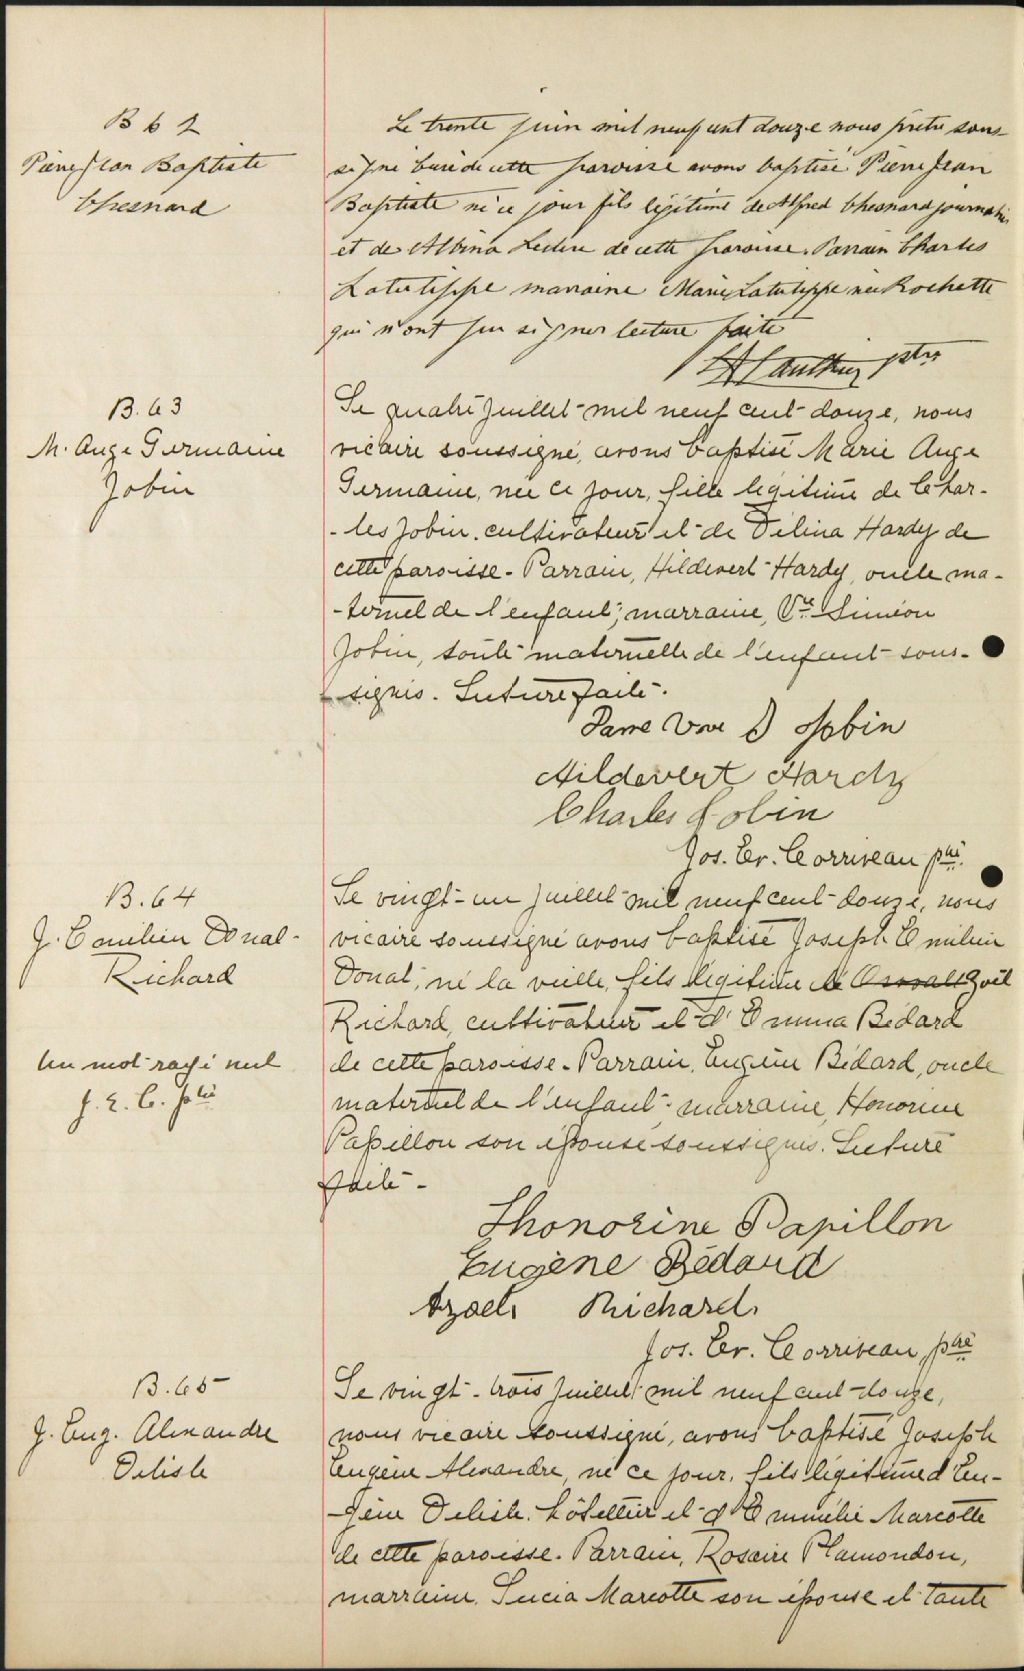 B 62
Pierre Jean Baptiste
Chesnard
Le trente juin mil neuf cent douze nous prêtre sous-
signé Curé de cette paroisse avons baptisé Pierre Jean
Baptiste né ce jour fils légitime de Alfred Chesnard journalier
et de Albina de cette paroisse. Parrain Charles
Latulippe marraine Marie Latulippe née Rochette
qui n'ont pu signer lecture faite
Gauthier ptre
B. 63
M. Ange Germaine
Jobin
Le quatre juillet mil neuf cent douze, nous
vicaire soussigné, avons baptisé Marie Ange
Germaine, née ce jour, fille légitime de Char-
-les Jobin, cultivateur et de Délina Hardy de
cette paroisse. Parrain, Hildevert Hardy, oncle ma-
-ternel de l'enfant; marraine, Vve Siméon
Jobin, tante maternelle de l'enfant sous-
signés. Lecture faite.
Dame Vve S Jobin
Hildevert Hardy
Charles Jobin
Jos. Ev. Corriveau ptre.
B. 64
J. Emilien Donat
Richard
Un mot rayé nul
J. E. C. ptre
Le vingt-un juillet mil neuf cent douze, nous
vicaire soussigné avons baptisé Joseph Emilien
Donat, né la veille, fils légitime de Azoël
Richard, cultivateur et d'Emma Bédard
de cette paroisse. Parrain, Eugène Bédard, oncle
maternel de l'enfant; marraine, Honorine
Papillon son épouse soussignés. Lecture
faite.
Thonorine Papillon
Eugène Bédard
Azael Richard
Jos. Ev. Corriveau, ptre
B. 65
J. Eug. Alexandre
Delisle
Le vingt-trois juillet mil neuf cent douze,
nous vicaire soussigné, avons baptisé Joseph
Eugène Alexandre, né ce jour, fils légitime d'Eu-
-gène Delisle, hôtellier et d'Emmélie Marcotte
de cette paroisse. Parrain, Rosaire Plamondon,
marraine, Lucia Marcotte son épouse et tante